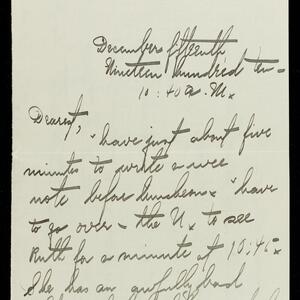 December fifteenth
Nineteen hundred ten –
10:40 a. M.
Dearest,
I have just about five
minutes to write a wee
note before luncheon. I have
to go over – the U. to see
Ruth for a minute at 10:45.
She has an awfully bad